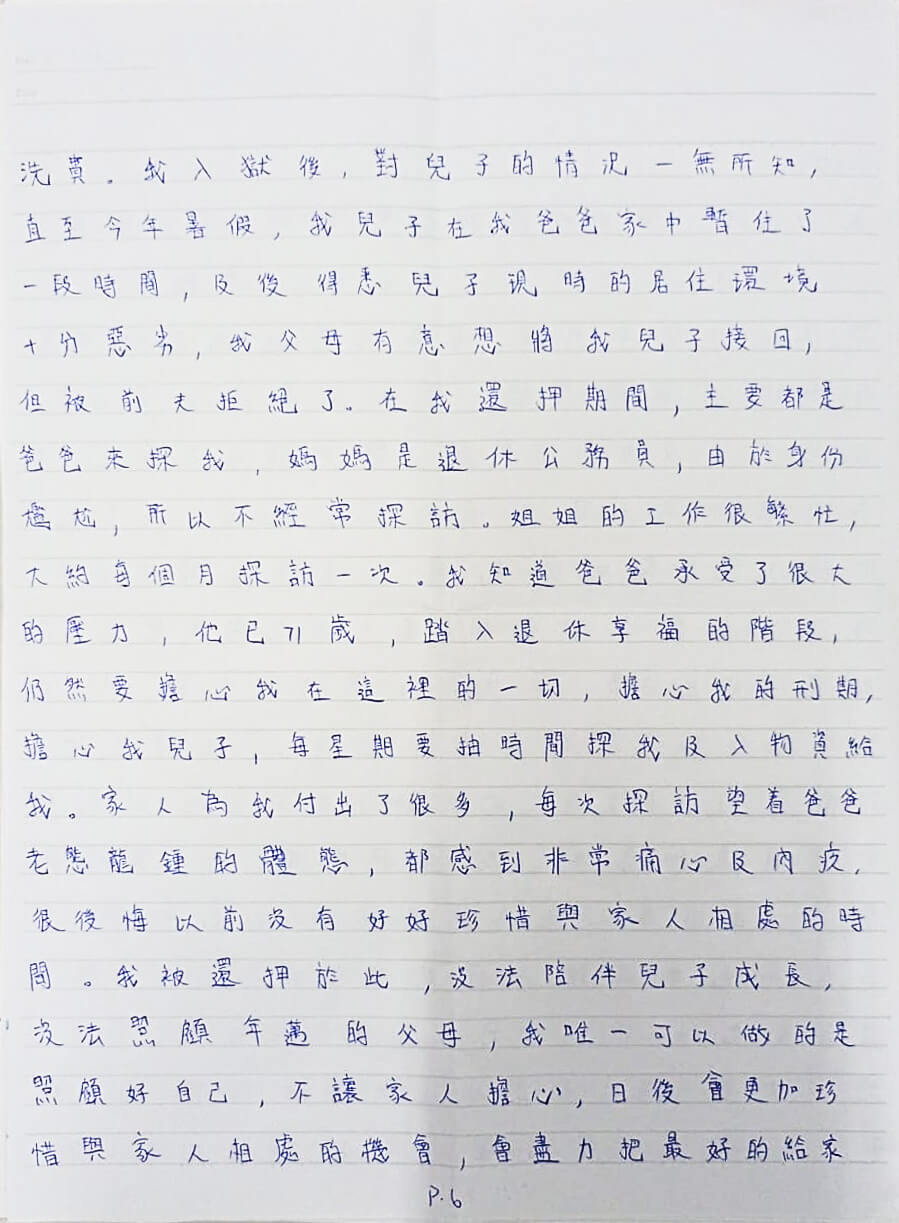 洗黃。我入獄後，對兒子的情況一無所知，
直至今年暑假，我兒子在我爸爸家中暫住了
一段時間，及後得悉兒子現時的居住環境
十分惡劣，我父母有意想將我兒子接回，
但被前夫拒絕了。在我還押期間，主要都是
爸爸來探我，媽媽是退休公務員，由於身份
尷尬，所以不經常探訪。姐姐的工作很繁忙，
大約每個月探訪一次。我知道爸爸承受了很大
的壓力，他已71歲，踏入退休享福的階段，
仍然要擔心我在這裡的一切，擔心我的刑期，
擔心我兒子，每星期要抽時間探我及入物資給
我。家人為我付出了很多，每次探訪望着爸爸
老態龍鍾的體態，都感到非常痛心及內疚，
很後悔以前沒有好好珍惜與家人相處的時
間。我被還押於此，沒法陪伴兒子成長，
沒法照顧年邁的父母，我唯一可以做的是
照顧好自己，不讓家人擔心，日後會更加珍
惜與家人相處的機會，會盡力把最好的給家
P.6